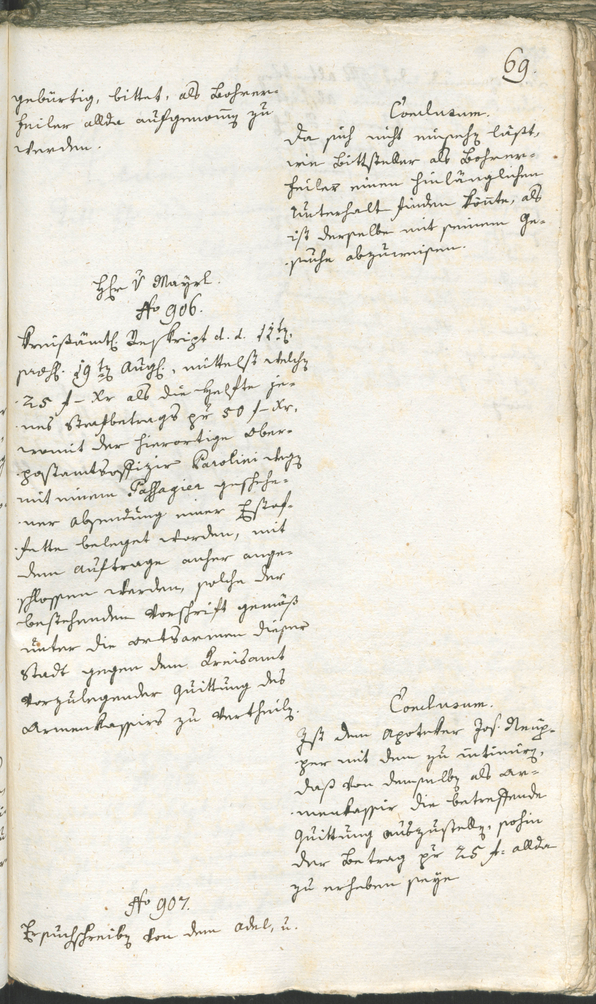 69
gebürtig, bittet, als Bohrer-
heiler allda aufgenommen zu
werden.
Conclusum.
Da sich nicht einsehen läßt,
wie Bittsteller als Bohrer-
heiler einen hinlänglichen
Unterhalt finden könte, als
ist derselbe mit seinem Ge-
suche abzuweisen.
H: v Mayrl.
No 906.
Kreisämtl. Reskript d. d. 12ten
19ten Aug., mittelst welchen
25 f – Xr als die Helfte je-
nes Strafbetrags pr 50 f – Xr,
womit der hierortige Ober-
postamtsoffizir Carolini wegen
mit einem Passagier geschehe-
ner absendung einer Estaf-
fette beleget worden, mit
dem auftrage anher ange-
schlossen werden, solche der
bestehenden Vorschrift gemäß
unter die ortsarmen dieser
Stadt gegen dem Kreisamt
vorzulegender Quittung des
Armenkassirs zu vertheilen.
Conclusum.
Ist dem Apoteker Jos.
mit dem zu intimiren,
daß von demselben als ar-
menkassir die betreffende
Quittung auszustellen, sohin
der Betrag pr 25 f. allda
zu erheben seye
No 907.
Ersuchschreiben von dem adel, u.